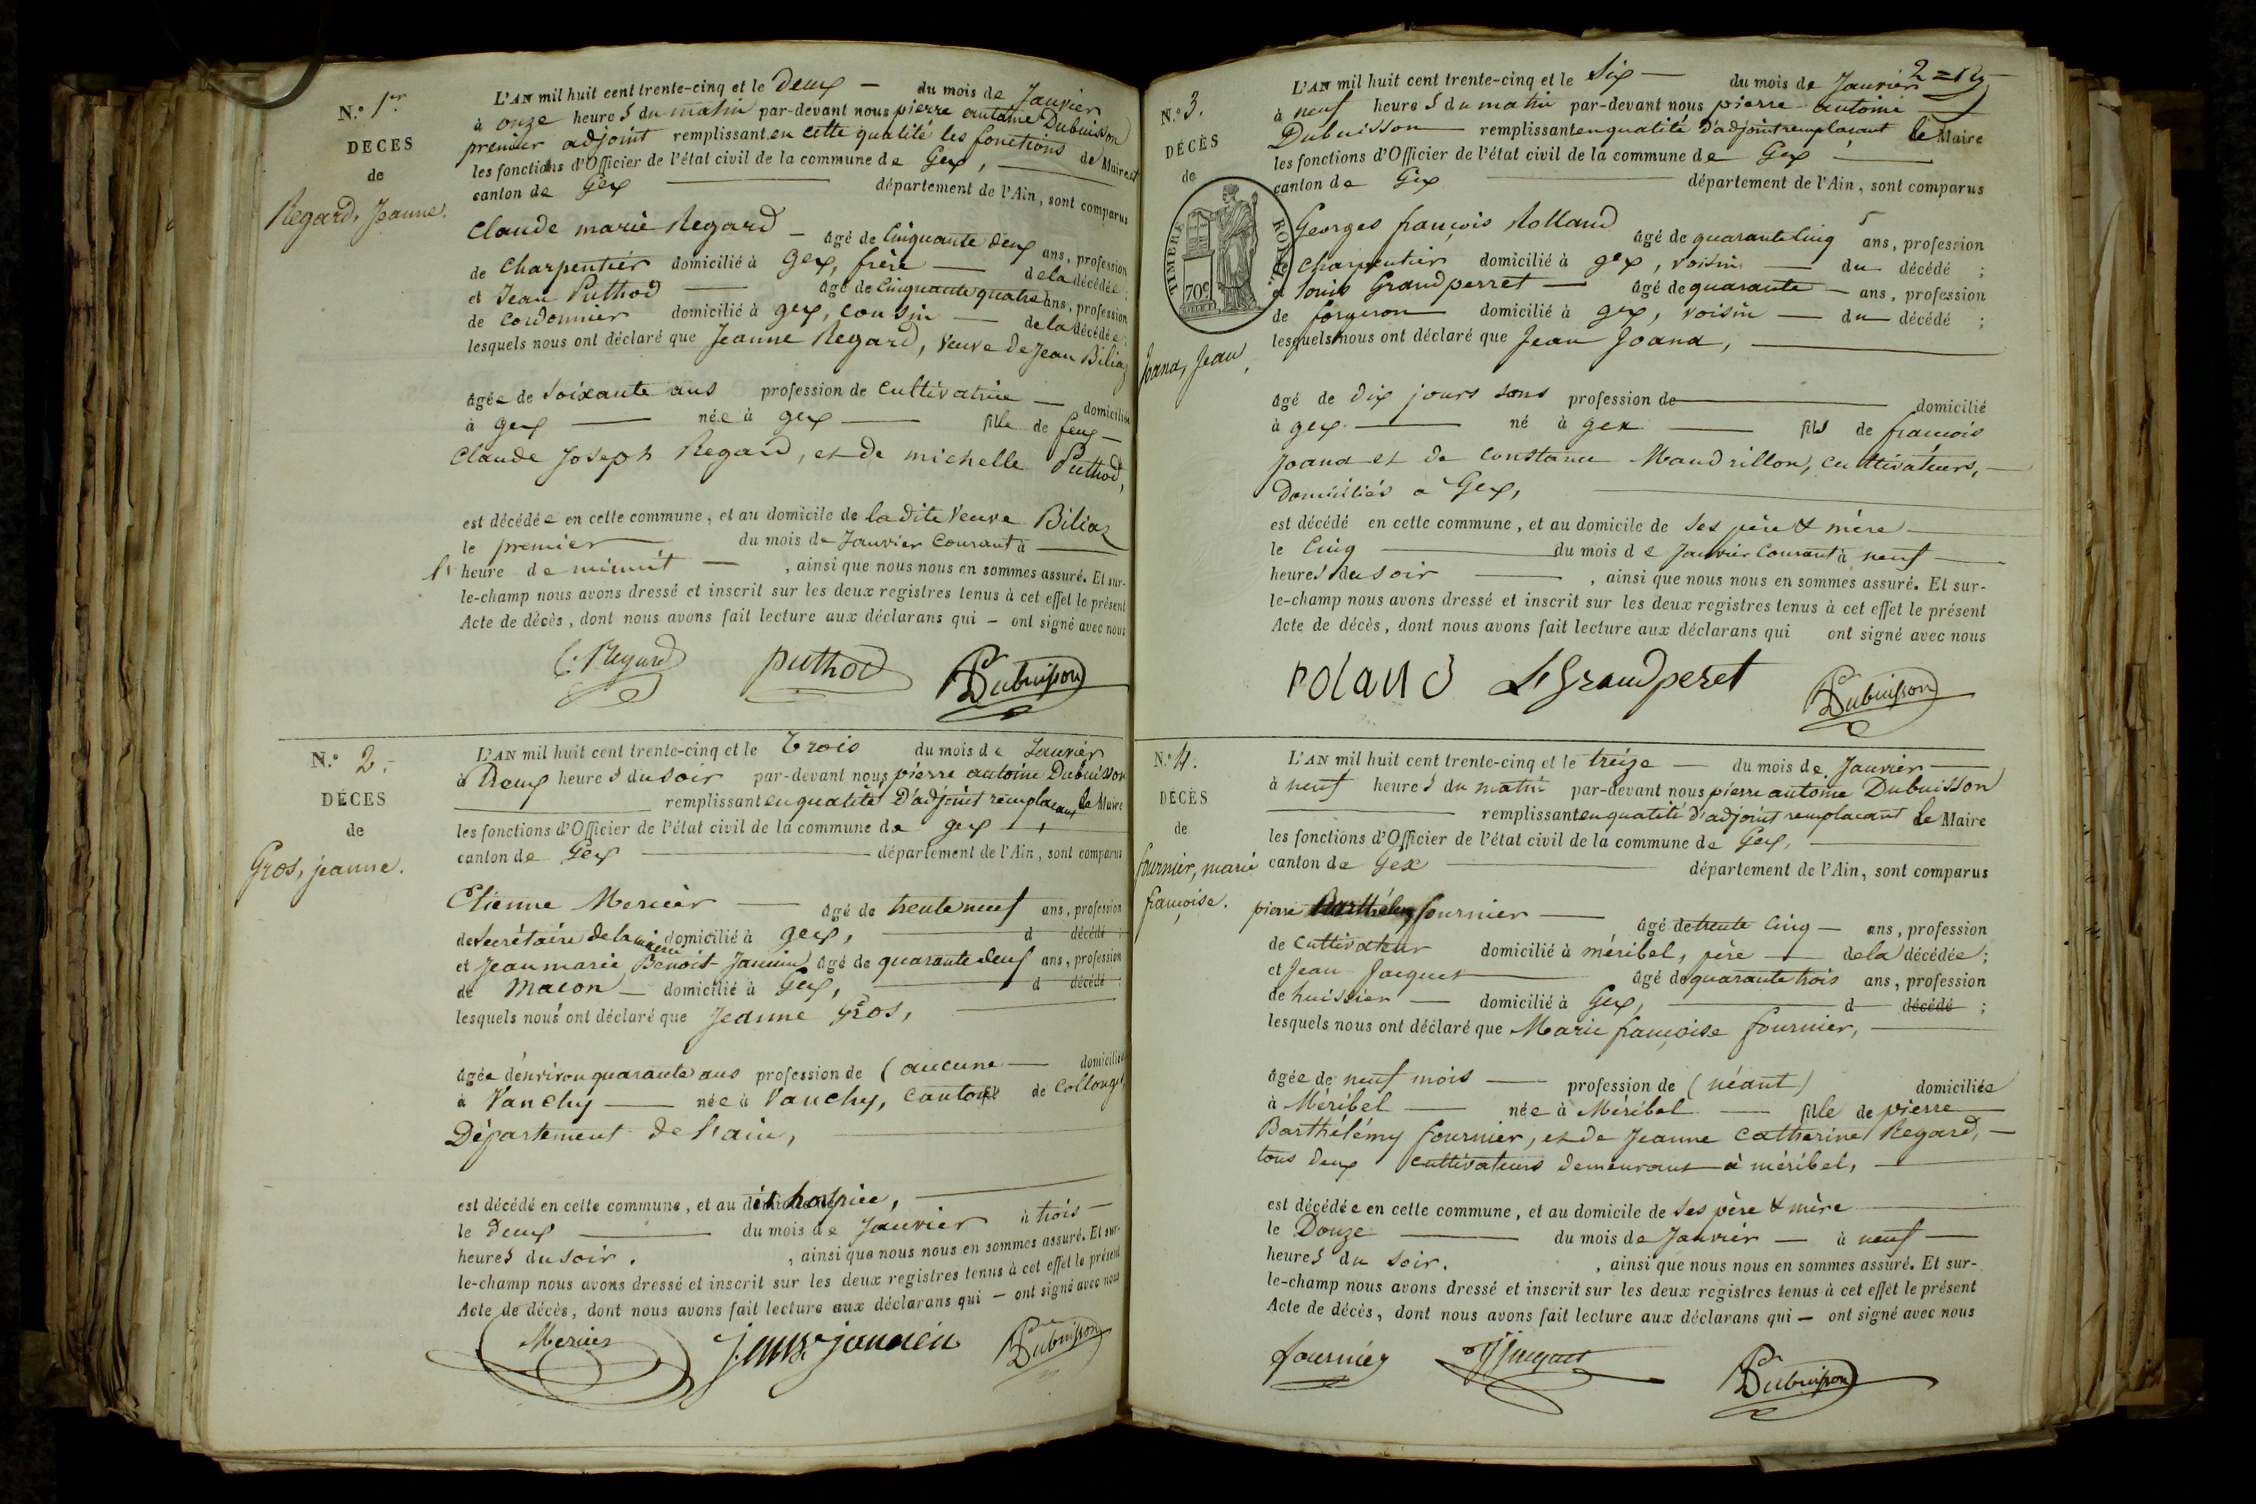 N.° 1.er
DECES
de
Regard, Jeanne.
L'AN mil huit cent trente-cinq et le deux — du mois de Janvier
à onze heures du matin par-devant nous pierre antoine Dubuisson
premier adjoint remplissant en cette qualité les fonctions de Maire et
les fonctions d'Officier de l'état civil de la commune de Gex,
canton de Gex département de l'Ain, sont comparus
Claude marie Regard — âgé de Cinquante deux ans, profession
de charpentier domicilié à Gex, frère — de la décédée ;
et Jean Puthod — âgé de Cinquante quatre ans, profession
de cordonnier domicilié à gex, cousin — de la décédée ;
lesquels nous ont déclaré que Jeanne Regard, veuve de Jean Biliaz
âgée de soixante ans profession de cultivatrice — domiciliée
à gex — née à gex — fille de feux —
Claude Joseph Regard, et de michelle Puthod,
est décédée en cette commune, et au domicile de la dite veuve Biliaz
le premier du mois de Janvier courant à
l' heure de minuit — , ainsi que nous nous en sommes assuré. Et sur-
le-champ nous avons dressé et inscrit sur les deux registres tenus à cet effet le présent
Acte de décès, dont nous avons fait lecture aux déclarans qui — ont signé avec nous
C. Regard puthod Dubuisson
N.° 2.
DÉCES
de
Gros, jeanne.
L'AN mil huit cent trente-cinq et le Trois du mois de Janvier
à Deux heures du soir par-devant nous pierre antoine Dubuisson
remplissant en qualité d'adjoint remplaçant le Maire
les fonctions d'Officier de l'état civil de la commune de gex
canton de Gex département de l'Ain, sont comparus
Etienne Mercier — âgé de trente neuf ans, profession
de secrétaire de la mairie domicilié à gex, d décédé ;
et Jean marie Benoit Janin âgé de quarante deux ans, profession
de Macon — domicilié à Gex, d décédé ;
lesquels nous ont déclaré que Jeanne Gros,
âgée d'environ quarante ans profession de (aucune — domiciliée
à Vanchy — née à Vanchy, canton de Collonges
Département de l'ain,
est décédé en cette commune, et au hospice,
le deux du mois de Janvier à trois —
heures du soir. , ainsi que nous nous en sommes assuré. Et sur-
le-champ nous avons dressé et inscrit sur les deux registres tenus à cet effet le présent
Acte de décès, dont nous avons fait lecture aux déclarans qui — ont signé avec nous
Mercier Dubuisson
N.° 3.
DÉCÈS
de
TIMBRE ROYAL
70c
Joana, Jean,
L'AN mil huit cent trente-cinq et le Six — du mois de Janvier
à neuf heures du matin par-devant nous pierre antoine
Dubuisson — remplissant en qualité d'adjoint remplaçant le Maire
les fonctions d'Officier de l'état civil de la commune de Gex
canton de Gex département de l'Ain, sont comparus
Georges françois Rolland âgé de quarante cinq ans, profession
charpentier domicilié à gex, voisin — du décédé ;
et Louis Grandperret — âgé de quarante — ans, profession
de forgeron domicilié à gex, voisin — du décédé ;
lesquels nous ont déclaré que Jean Joana,
âgé de dix jours sans profession de domicilié
à gex — né à gex — fils de françois
Joana et de constance Mandrillon, cultivateurs, —
domiciliés à Gex,
est décédé en cette commune, et au domicile de ses père & mère
le Cinq du mois de Janvier courant à neuf —
heures du soir — , ainsi que nous nous en sommes assuré. Et sur-
le-champ nous avons dressé et inscrit sur les deux registres tenus à cet effet le présent
Acte de décès, dont nous avons fait lecture aux déclarans qui ont signé avec nous
roland L Grandperet Dubuisson
N.° 4.
DÉCÈS
de
fournier, marie
françoise.
L'AN mil huit cent trente-cinq et le treize — du mois de Janvier —
à neuf heures du matin par-devant nous pierre antoine Dubuisson
remplissant en qualité d'adjoint remplaçant le Maire
les fonctions d'Officier de l'état civil de la commune de Gex,
canton de Gex département de l'Ain, sont comparus
pierre Barthélemy fournier — âgé de trente cinq — ans, profession
de cultivateur domicilié à méribel, père — de la décédée ;
et Jean Jacquet âgé de quarante trois ans, profession
de huissier — domicilié à Gex, d décédé ;
lesquels nous ont déclaré que Marie françoise fournier,
âgée de neuf mois — profession de (néant) domiciliée
à Méribel — née à Méribel — fille de pierre
Barthélémy fournier, et de Jeanne Catherine Regard, —
tous deux cultivateurs demeurant à méribel,
est décédée en cette commune, et au domicile de ses père & mère
le Douze du mois de Janvier — à neuf —
heures du soir. , ainsi que nous nous en sommes assuré. Et sur-
le-champ nous avons dressé et inscrit sur les deux registres tenus à cet effet le présent
Acte de décès, dont nous avons fait lecture aux déclarans qui — ont signé avec nous
fournier Jacquet Dubuisson